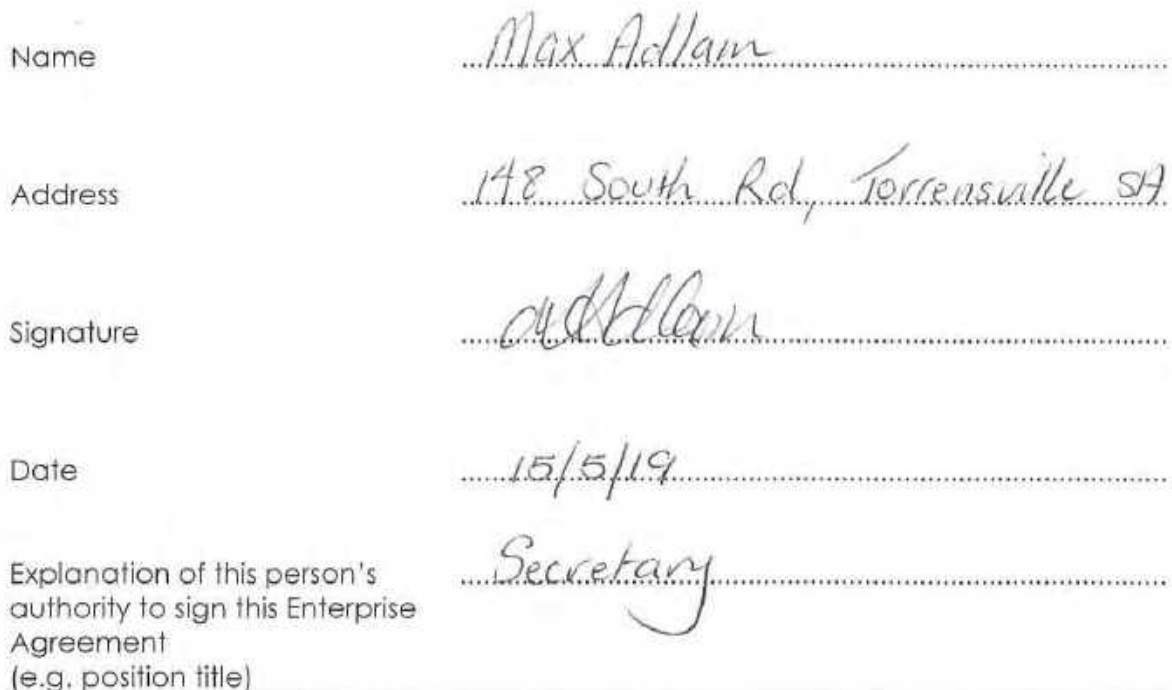 Name Max Adlam
Address 148 South Rd, Torrensville SA
Signature
Date 15/5/19
Explanation of this person's Secretary
authority to sign this Enterprise
Agreement
(e.g. position title)